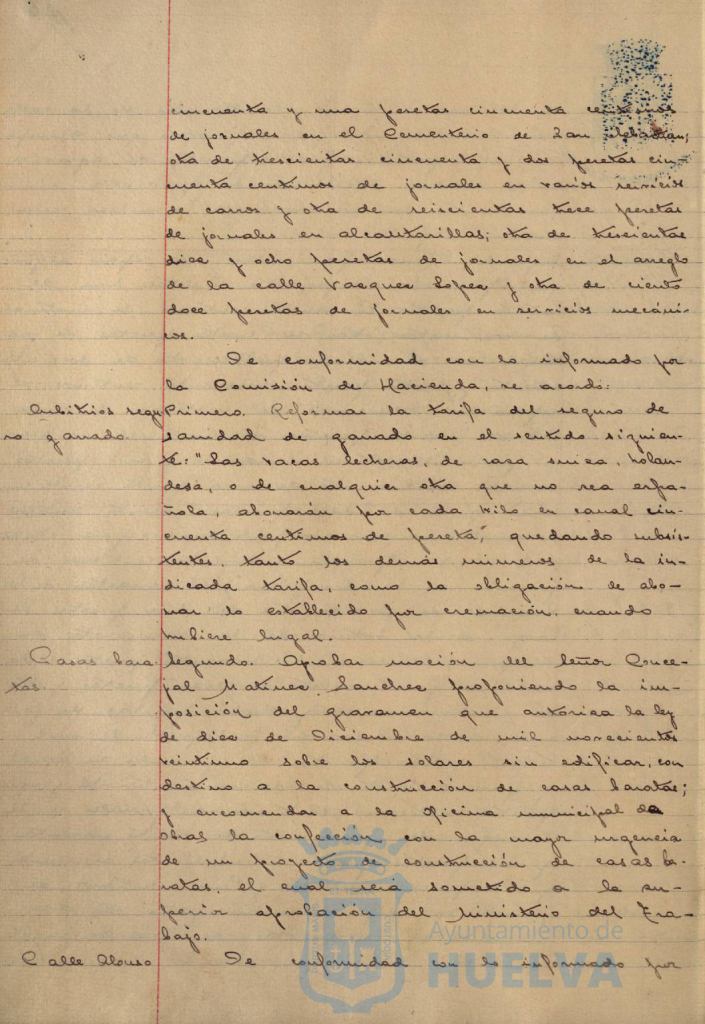 cincuenta y una pesetas cincuenta centimos
de jornales en el Cementerio de San Sebastian;
otra de trescientas cincuenta y dos pesetas cin-
cuenta centimos de jornales en varios servicios
de carros y otra de seiscientas trece pesetas
de jornales en alcantarillas; otra de trescientas
diez y ocho pesetas de jornales en el arreglo
de la calle Vazquez Lopez y otra de ciento
doce pesetas de jornales en servicios mecáni-
cos.
De conformidad con lo informado por
la Comisión de Hacienda, se acordó:
Arbitrios segu
ro ganado.
Primero. Reformar la tarifa del seguro de
sanidad de ganado en el sentido siguien-
te: "Las vacas lecheras, de raza suiza, holan-
desa, o de cualquier otra que no sea espa-
ñola, abonarán por cada kilo en canal cin-
cuenta centimos de peseta", quedando subsis-
tentes, tanto los demás números de la in-
dicada tarifa, como la obligación de abo-
nar lo establecido por cremación, cuando
hubiere lugar.
Casas bara-
tas.
Segundo. Aprobar moción del Señor Conce-
jal Matinez Sanchez proponiendo la im-
posición del gravamen que autoriza la ley
de diez de Diciembre de mil novecientos
veintiuno sobre los solares sin edificar, con
destino a la construcción de casas baratas;
y encomendar a la oficina municipal de
obras la confección con la mayor urgencia
de un proyecto de construcción de casas ba-
ratas, el cual será sometido a la su-
perior aprobación del Ministerio del Tra-
bajo.
Calle Alonso
De conformidad con lo informado por
Ayuntamiento de
HUELVA